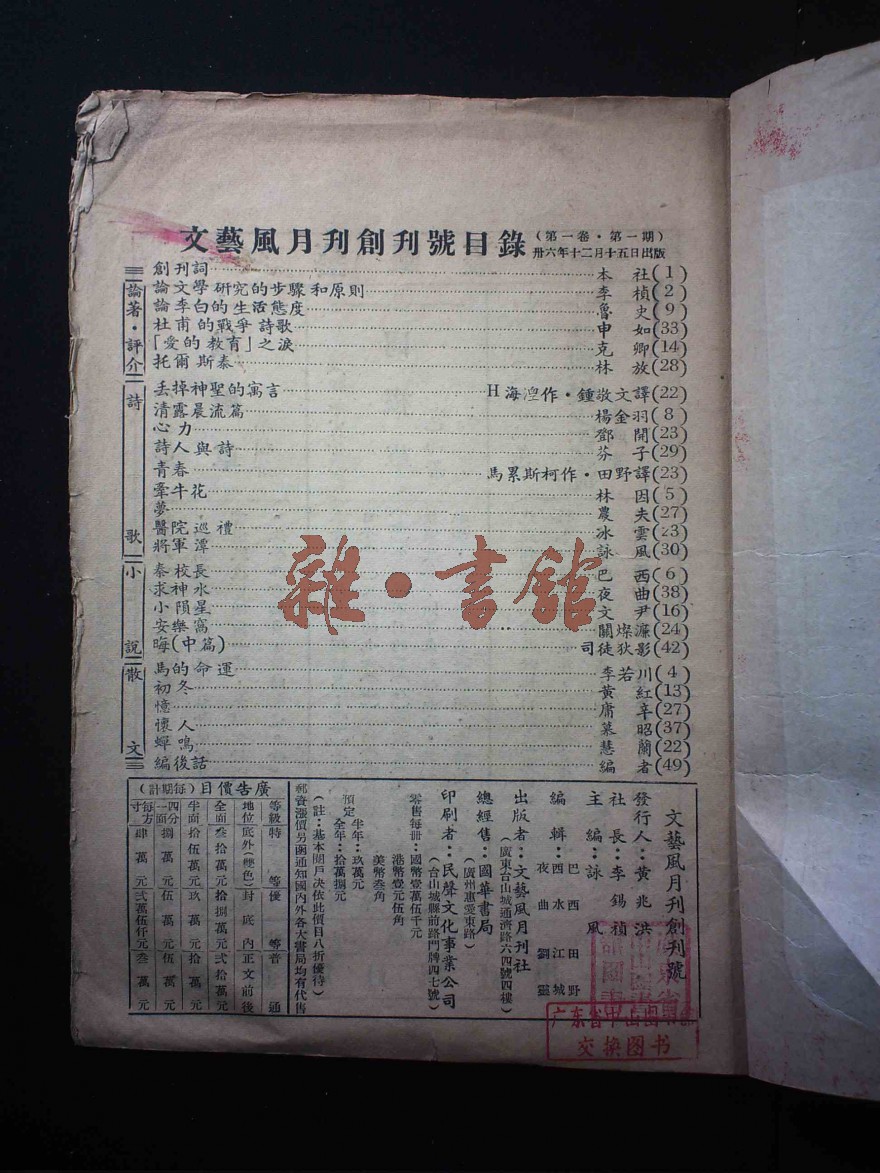 文藝風月刊創刊號目錄
(第一卷・第一期)
卅六年十二月十五日出版
論著・評介
創刊詞 本社(1)
論文學研究的步驟和原則 李楨(2)
論李白的生活態度 魯史(9)
杜甫的戰爭詩歌 申如(33)
「愛的教育」之淚 克卿(14)
托爾斯泰 林放(28)
詩歌
丟掉神聖的寓言 H海湼作・鍾敬文譯(22)
清露晨流篇 楊金羽(8)
心力 鄧開(23)
詩人與詩 芬子(29)
青春 馬累斯柯作・田野譯(23)
牽牛花 林因(5)
夢 農夫(27)
醫院巡禮 冰雲(23)
將軍潭 詠風(30)
小說
秦校長 巴西(6)
求神水 夜曲(38)
小隕星 文尹(16)
安樂窩 關燦濂(24)
晦(中篇) 司徒狄影(42)
散文
馬的命運 李若川(4)
初冬 黃紅(13)
憶 庸辛(27)
懷人 慕昭(37)
蟬鳴 慧蘭(22)
編後話 編者(49)
文藝風月刊創刊號
發行人：黃兆洪
社長：李錫禎
主編：詠風
編輯：巴西 田野
西水 江城
夜曲 劉靈
出版者：文藝風月刊社
(廣東台山城通濟路六四號四樓)
總經售：國華書局
(廣州惠愛東路)
印刷者：民聲文化事業公司
(台山城縣前路門牌四七號)
零售每冊：國幣壹萬伍千元
港幣壹元伍角
美幣叁角
預定 半年：玖萬元
全年：拾萬捌元
(註：基本閱戶决依此價目八折優待)
郵資漲價另函通知國內外各大書局均有代售
廣告價目(每期計)
等級 特等 優等 普通
地位 底外(雙色) 封底內 正文前後
全面 叁拾萬元 拾捌萬元 弍拾萬元
半面 拾伍萬元 玖萬元 拾萬元
四分一面 捌萬元 伍萬元 伍萬元
每方寸 肆萬元 弍萬伍仟元 叁萬元
雜・書館
广东省中山图书馆
交换图书